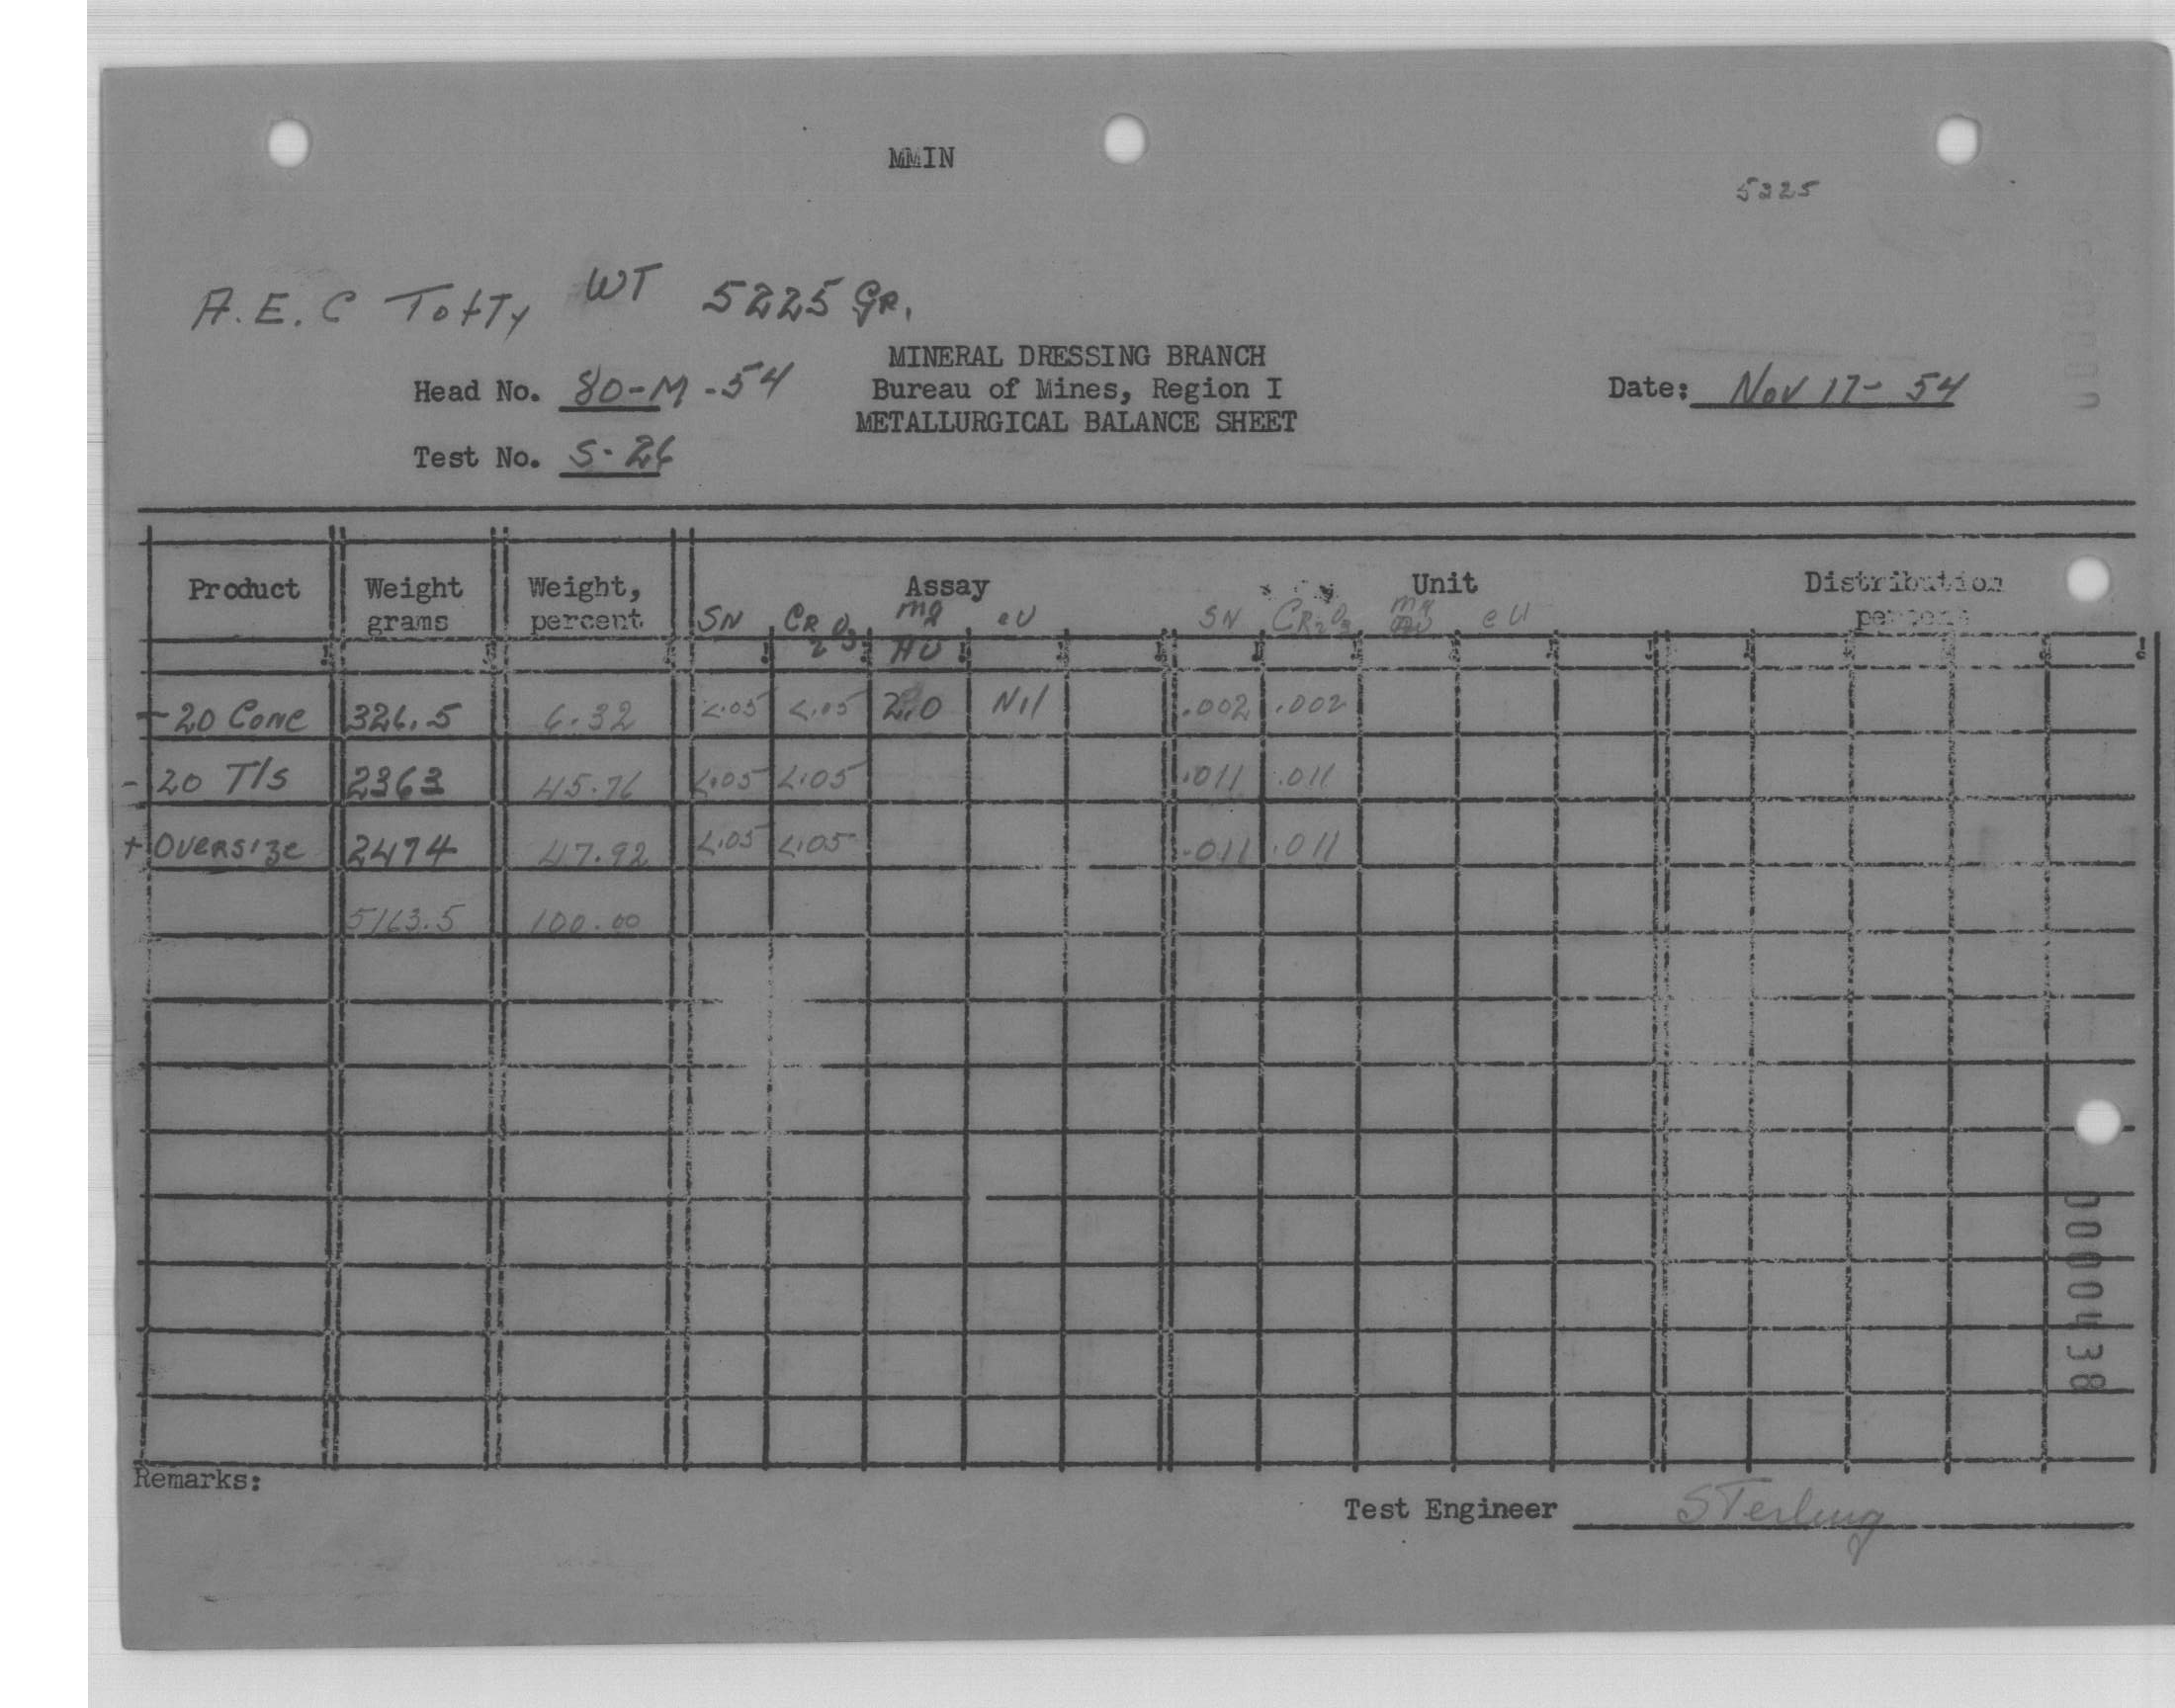 MMIN
5225
A.E.C Tofty WT 5225 GR.
MINERAL DRESSING BRANCH
Head No. 80-M-54 Bureau of Mines, Region I Date: Nov 17-54
METALLURGICAL BALANCE SHEET
Test No. S-26
Product Weight grams Weight, percent Assay Unit Distribution percent
SN CR2O3 mg AU eU SN CR2O3 mg AU eU
-20 Conc 326.5 6.32 <.05 <.05 2.0 Nil .002 .002
-20 T/s 2363 45.76 <.05 <.05 .011 .011
+ Oversize 2474 47.92 <.05 <.05 .011 .011
5163.5 100.00
0000438
Remarks:
Test Engineer Sterling